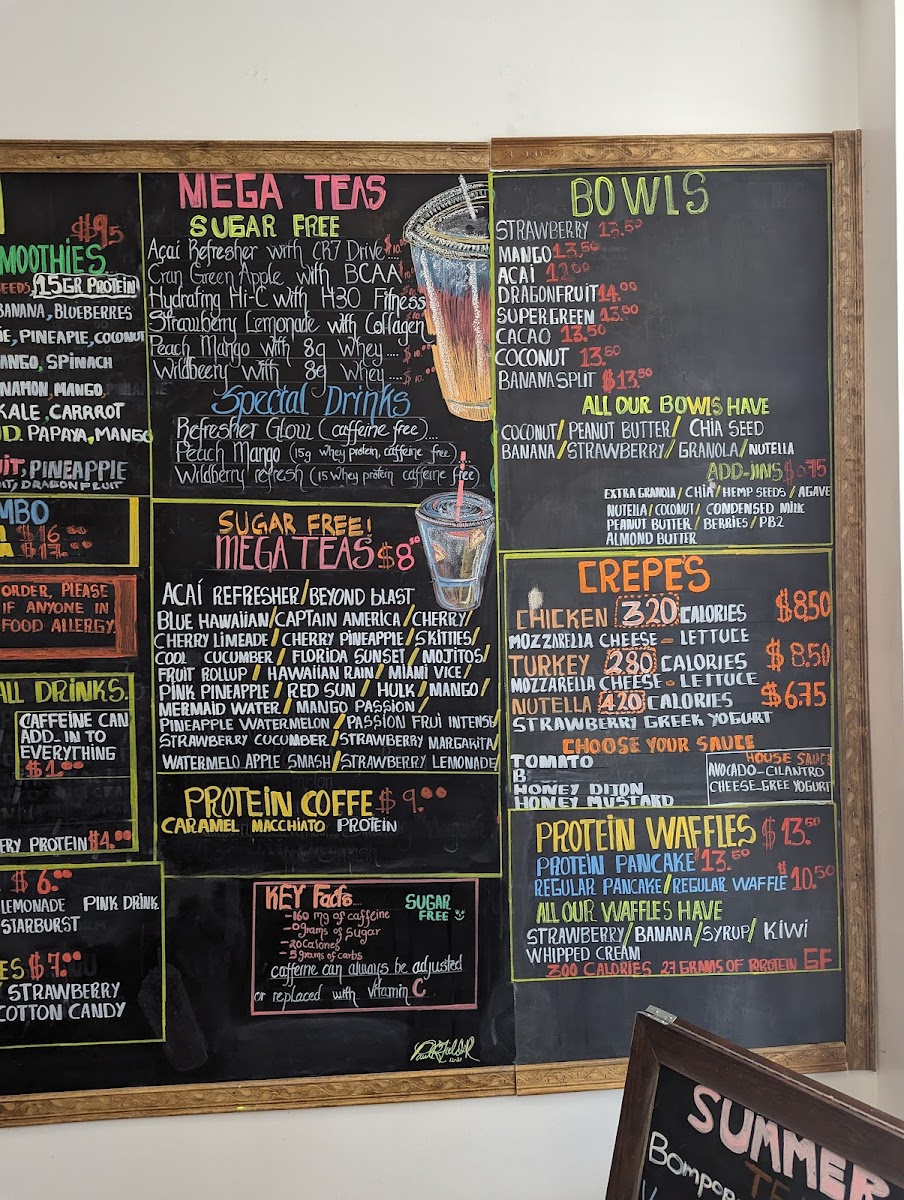 $9.5
MOOTHIES
SEEDS, 15GR PROTEIN
BANANA, BLUEBERRES
PINEAPLE, COCONUT
MANGO, SPINACH
NAMON, MANGO, PINEAPPLE
KALE, CARRROT
PAPAYA, MANGO
UIT, PINEAPPLE
DRAGON FRUIT
MBO
$16.00
$17.00
ORDER, PLEASE
IF ANYONE IN
FOOD ALLERGY
ALL DRINKS.
CAFFEINE CAN
ADD-IN TO
EVERYTHING
$1.00
FRY PROTEIN $4.00
$6.00
LEMONADE PINK DRINK
STARBURST
ES $7.00
STRAWBERRY
COTTON CANDY
MEGA TEAS
SUGAR FREE
Acai Refresher with CR7 Drive $10.
Cran Green Apple with BCAA
Hydrating Hi-C with H30 Fitness
Strawberry Lemonade with Collagen
Peach Mango with 8g Whey.... $10.
Wildbeery with 8g whey.... $10.
Special Drinks
Refresher Glow (caffeine free)...
Peach Mango (15g whey protein, caffeine free)...
Wildberry refresh (15 Whey protein caffeine free)
SUGAR FREE!
MEGA TEAS $8.50
AÇAÍ REFRESHER/BEYOND BLAST
BLUE HAWAIIAN/CAPTAIN AMERICA/CHERRY/
CHERRY LIMEADE/CHERRY PINEAPPLE/SKITTLES/
COOL CUCUMBER/FLORIDA SUNSET/MOJITOS/
FRUIT ROLLUP/HAWAIIAN RAIN/MIAMI VICE/
PINK PINEAPPLE/RED SUN/HULK/MANGO/
MERMAID WATER/MANGO PASSION/
PINEAPPLE WATERMELON/PASSION FRUI INTENSE/
STRAWBERRY CUCUMBER/STRAWBERRY MARGARITA/
WATERMELO APPLE SMASH/STRAWBERRY LEMONADE
PROTEIN COFFE $9.00
CARAMEL MACCHIATO PROTEIN
KEY Facts...
SUGAR
FREE
-160 mg of caffeine
-0 grams of sugar
-20 calories
-5 grams of carbs
caffeine can always be adjusted
or replaced with vitamin C
BOWLS
STRAWBERRY 13.50
MANGO 13.50
ACAÍ 12.00
DRAGONFRUIT 14.00
SUPERGREEN 13.50
CACAO 13.50
COCONUT 13.50
BANANA SPLIT $13.50
ALL OUR BOWLS HAVE
COCONUT/PEANUT BUTTER/CHIA SEED
BANANA/STRAWBERRY/GRANOLA/NUTELLA
ADD-JINS $0.75
EXTRA GRANOLA/CHIA/HEMP SEEDS/AGAVE
NUTELLA/COCONUT/CONDENSED MILK
PEANUT BUTTER/BERRIES/PB2
ALMOND BUTTER
CREPE'S
CHICKEN 320 CALORIES $8.50
MOZZARELLA CHEESE - LETTUCE
TURKEY 280 CALORIES $8.50
MOZZARELLA CHEESE - LETTUCE
NUTELLA 420 CALORIES $6.75
STRAWBERRY GREEK YOGURT
CHOOSE YOUR SAUCE
TOMATO
B
HONEY DIJON
HONEY MUSTARD
HOUSE SAUCE
AVOCADO-CILANTRO
CHEESE-GREE YOGURT
PROTEIN WAFFLES $13.50
PROTEIN PANCAKE 13.50
REGULAR PANCAKE/REGULAR WAFFLE $10.50
ALL OUR WAFFLES HAVE
STRAWBERRY/BANANA/SYRUP/KIWI
WHIPPED CREAM
300 CALORIES 27 GRAMS OF PROTEIN GF
SUMMER
Bompop
TE